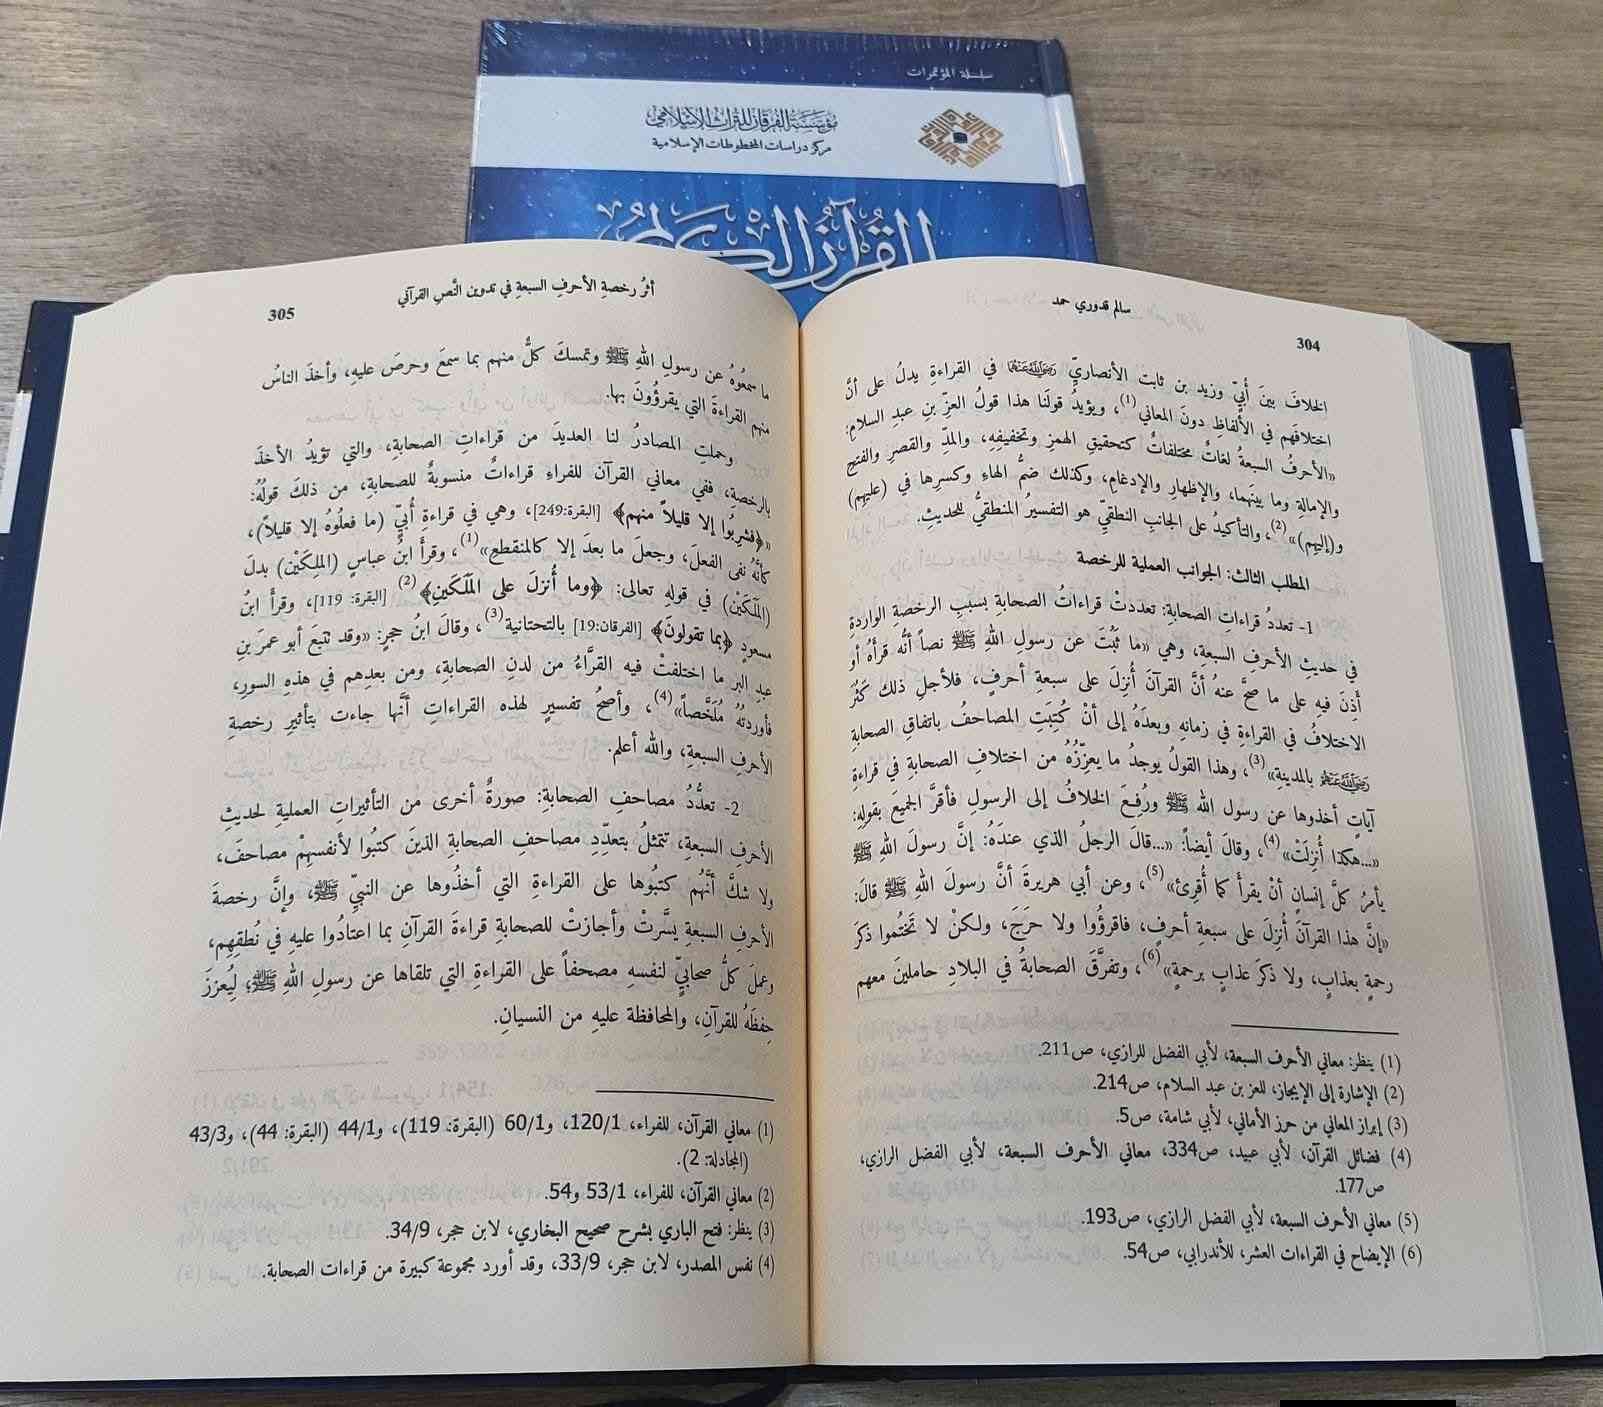 سلسلة المؤتمرات
مؤسسة الفرقان للتراث الإسلامي
مركز دراسات المخطوطات الإسلامية
القرآن الكريم
سالم قدوري حمد
304
الخلافَ بينَ أُبيٍّ وزيد بن ثابت الأنصاريِّ ﵄ في القراءةِ يدلُ على أنَّ
اختلافَهم في الألفاظِ دونَ المعاني(1)، ويؤيدُ قولَنا هذا قولُ العزِّ بنِ عبدِ السلامِ:
«الأحرفُ السبعةُ لغاتٌ مختلفاتٌ كتحقيقِ الهمزِ وتخفيفِهِ، والمدِّ والقصرِ والفتحِ
والإمالةِ وما بينَهما، والإظهارِ والإدغامِ، وكذلك ضمُّ الهاءِ وكسرِها في (عليهِم)
و(إليهِم)»(2)، والتأكيدُ على الجانبِ النطقيِّ هو التفسيرُ المنطقيُّ للحديثِ.
المطلب الثالث: الجوانب العملية للرخصة
1- تعددُ قراءاتِ الصحابةِ: تعددتْ قراءاتُ الصحابةِ بسببِ الرخصةِ الواردةِ
في حديثِ الأحرفِ السبعةِ، وهي «ما ثَبُتَ عن رسولِ اللهِ ﷺ نصاً أنَّه قرأَهُ أو
أَذِنَ فيهِ على ما صحَّ عنهُ أنَّ القرآنَ أُنزِلَ على سبعةِ أحرفٍ، فلأجلِ ذلك كَثُرَ
الاختلافُ في القراءةِ في زمانهِ وبعدَهُ إلى أنْ كُتِبَتِ المصاحفُ باتفاقِ الصحابةِ
بالمدينةِ»(3)، وهذا القولُ يوجدُ ما يعزِّزُهُ من اختلافِ الصحابةِ في قراءةِ
آياتٍ أخذوها عن رسول الله ﷺ ورُفِعَ الخلافُ إلى الرسولِ فأقرَّ الجميعَ بقولِهِ:
«...هكذا أُنزِلَتْ»(4)، وقالَ أيضاً: «...قالَ الرجلُ الذي عندَهُ: إنَّ رسولَ اللهِ ﷺ
يأمرُ كلَّ إنسانٍ أنْ يقرأَ كما أُقرِئ»(5)، وعن أبي هريرةَ أنَّ رسولَ اللهِ ﷺ قالَ:
«إنَّ هذا القرآنَ أُنزِلَ على سبعةِ أحرفٍ، فاقرؤُوا ولا حرَجَ، ولكنْ لا تَختُموا ذكرَ
رحمةٍ بعذابٍ، ولا ذكرَ عذابٍ برحمةٍ»(6)، وتفرَّقَ الصحابةُ في البلادِ حاملينَ معهم
(1) ينظر: معاني الأحرف السبعة، لأبي الفضل للرازي، ص211.
(2) الإشارة إلى الإيجاز، للعز بن عبد السلام، ص214.
(3) إبراز المعاني من حرز الأماني، لأبي شامة، ص5.
(4) فضائل القرآن، لأبي عبيد، ص334، معاني الأحرف السبعة، لأبي الفضل الرازي،
ص177.
(5) معاني الأحرف السبعة، لأبي الفضل الرازي، ص193.
(6) الإيضاح في القراءات العشر، للأندرابي، ص54.
أثرُ رخصةِ الأحرفِ السبعةِ في تدوين النَّصِ القرآني
305
ما سمعُوهُ عن رسولِ اللهِ ﷺ وتمسكَ كلٌّ منهم بما سمعَ وحرصَ عليهِ، وأخذَ الناسُ
منهم القراءةَ التي يقرؤُونَ بها.
وحملتِ المصادرُ لنا العديدَ من قراءاتِ الصحابةِ، والتي تؤيدُ الأخذَ
بالرخصةِ، ففي معاني القرآن للفراءِ قراءاتٌ منسوبةٌ للصحابةِ، من ذلكَ قولُهُ:
«﴿فشرِبُوا إلا قليلاً منهم﴾ [البقرة:249]، وهي في قراءةِ أُبيٍّ (ما فعلُوهُ إلا قليلاً)،
كأنَّهُ نفى الفعلَ، وجعلَ ما بعدَ إلا كالمنقطعِ»(1)، وقرأَ ابنُ عباسٍ (الملِكَيْن) بدلَ
(الملَكَيْن) في قولهِ تعالى: ﴿وما أُنزلَ على الملَكَينِ﴾(2) [البقرة: 119]، وقرأَ ابنُ
مسعودٍ ﴿بما تقولونَ﴾ [الفرقان:19] بالتحتانية(3)، وقالَ ابنُ حجرٍ: «وقد تتبعَ أبو عمرَ بنِ
عبدِ البر ما اختلفتْ فيه القرَّاءُ من لدنِ الصحابةِ، ومن بعدِهم في هذهِ السورِ،
فأوردتُهُ مُلَخَّصاً»(4)، وأصحُ تفسيرٍ لهذه القراءاتِ أنَّها جاءت بتأثيرِ رخصةِ
الأحرفِ السبعةِ، والله أعلم.
2- تعدُّدُ مصاحفِ الصحابةِ: صورةٌ أخرى من التأثيراتِ العمليةِ لحديثِ
الأحرفِ السبعةِ، تتمثلُ بتعدِّدِ مصاحفِ الصحابةِ الذينَ كتبُوا لأنفسِهِمْ مصاحفَ،
ولا شكَّ أنَّهُم كتبُوها على القراءةِ التي أخذُوها عن النبيِّ ﷺ، وإنَّ رخصةَ
الأحرفِ السبعةِ يسَّرتْ وأجازتْ للصحابةِ قراءةَ القرآنِ بما اعتادُوا عليهِ في نُطقِهِم،
وعملَ كلُّ صحابيٍّ لنفسهِ مصحفاً على القراءةِ التي تلقاها عن رسولِ اللهِ ﷺ؛ لِيُعززَ
حِفظَهُ للقرآنِ، والمحافظة عليهِ من النسيانِ.
(1) معاني القرآن، للفراء، 120/1، و60/1 (البقرة: 119)، و44/1 (البقرة: 44)، و43/3
(المجادلة: 2).
(2) معاني القرآن، للفراء، 53/1 و54.
(3) ينظر: فتح الباري بشرح صحيح البخاري، لابن حجر، 34/9.
(4) نفس المصدر، لابن حجر، 33/9، وقد أورد مجموعة كبيرة من قراءات الصحابة.